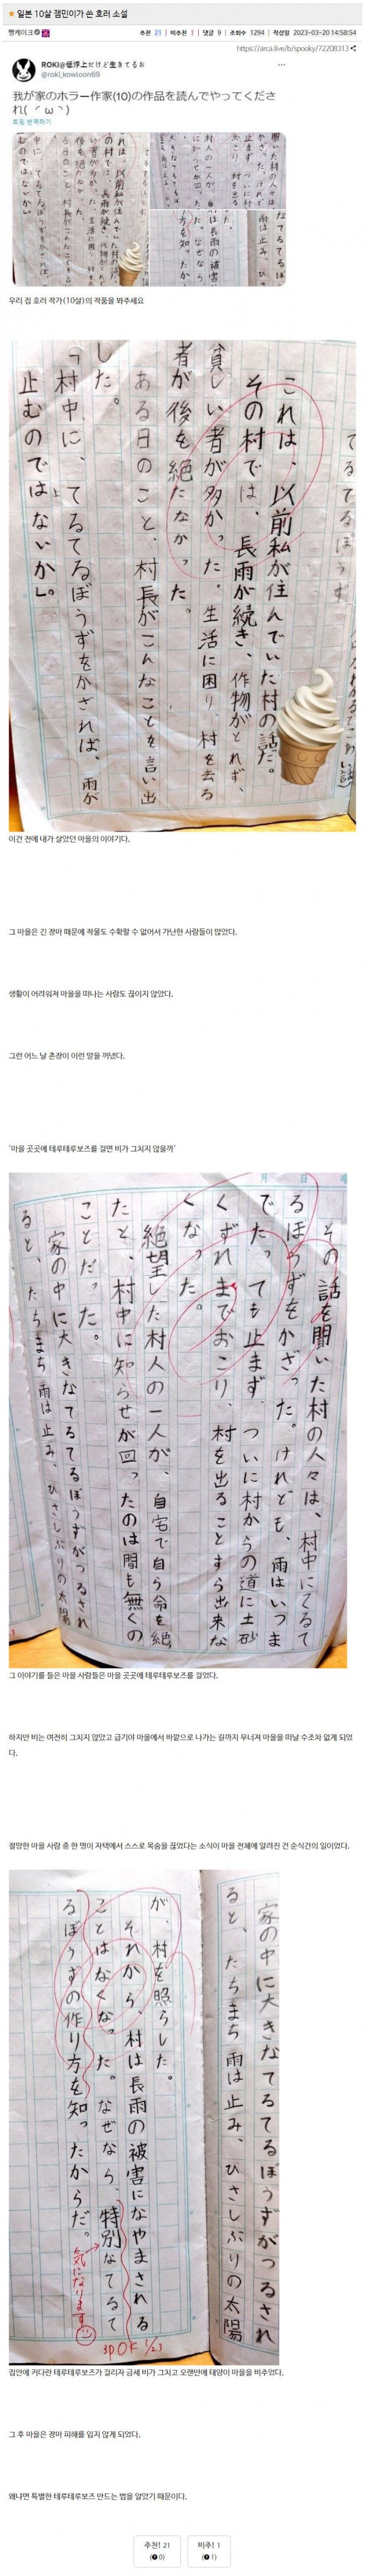 일본 10살 잼민이가 쓴 호러 소설
빵케이크
추천 21 | 비추천 1 | 댓글 9 | 조회수 1294 | 작성일 2023-03-20 14:58:54
https://arca.live/b/spooky/72208313
ROKI@低浮上だけど生きてるお
@roki_kowloon69
我が家のホラー作家(10)の作品を読んでやってくださ
れ( ´ω`)
트윗 번역하기
우리 집 호러 작가(10살)의 작품을 봐주세요
てるてるぼうず
これは、以前私が住んでいた村の話だ。
その村では、長雨が続き、作物がとれず、
貧しい者が多かった。生活に困り、村を去る
者が後を絶たなかった。
ある日のこと、村長がこんなことを言い出
した。
「村中に、てるてるぼうずをかざれば、雨が
止むのではないか」。
이건 전에 내가 살았던 마을의 이야기다.
그 마을은 긴 장마 때문에 작물도 수확할 수 없어서 가난한 사람들이 많았다.
생활이 어려워져 마을을 떠나는 사람도 끊이지 않았다.
그런 어느 날 촌장이 이런 말을 꺼냈다.
'마을 곳곳에 테루테루보즈를 걸면 비가 그치지 않을까'
月 日
その話を聞いた村の人々は、村中にてるて
るぼうずをかざった。けれども、雨はいつま
でたっても止まず、ついに村からの道に土砂
くずれまでおこり、村を出ることすら出来な
くなった。
絶望した村人の一人が、自宅で自ら命を絶
たと、村中に知らせが回ったのは間も無くの
ことだった。
家の中に大きなてるてるぼうずがつるされ
ると、たちまち雨は止み、ひさしぶりの太陽
그 이야기를 들은 마을 사람들은 마을 곳곳에 테루테루보즈를 걸었다.
하지만 비는 여전히 그치지 않았고 급기야 마을에서 바깥으로 나가는 길까지 무너져 마을을 떠날 수조차 없게 되었
다.
절망한 마을 사람 중 한 명이 자택에서 스스로 목숨을 끊었다는 소식이 마을 전체에 알려진 건 순식간의 일이었다.
家の中に大きなてるてるぼうずがつるされ
ると、たちまち雨は止み、ひさしぶりの太陽
が、村を照らした。
それから、村は長雨の被害になやまされる
ことはなくなった。なぜなら、特別なてるて
るぼうずの作り方を知ったからだ。
気になります
3P OK 1/23
집안에 커다란 테루테루보즈가 걸리자 금세 비가 그치고 오랜만에 태양이 마을을 비추었다.
그 후 마을은 장마 피해를 입지 않게 되었다.
왜냐면 특별한 테루테루보즈 만드는 법을 알았기 때문이다.
추천! 21
(0)
비추! 1
(1)